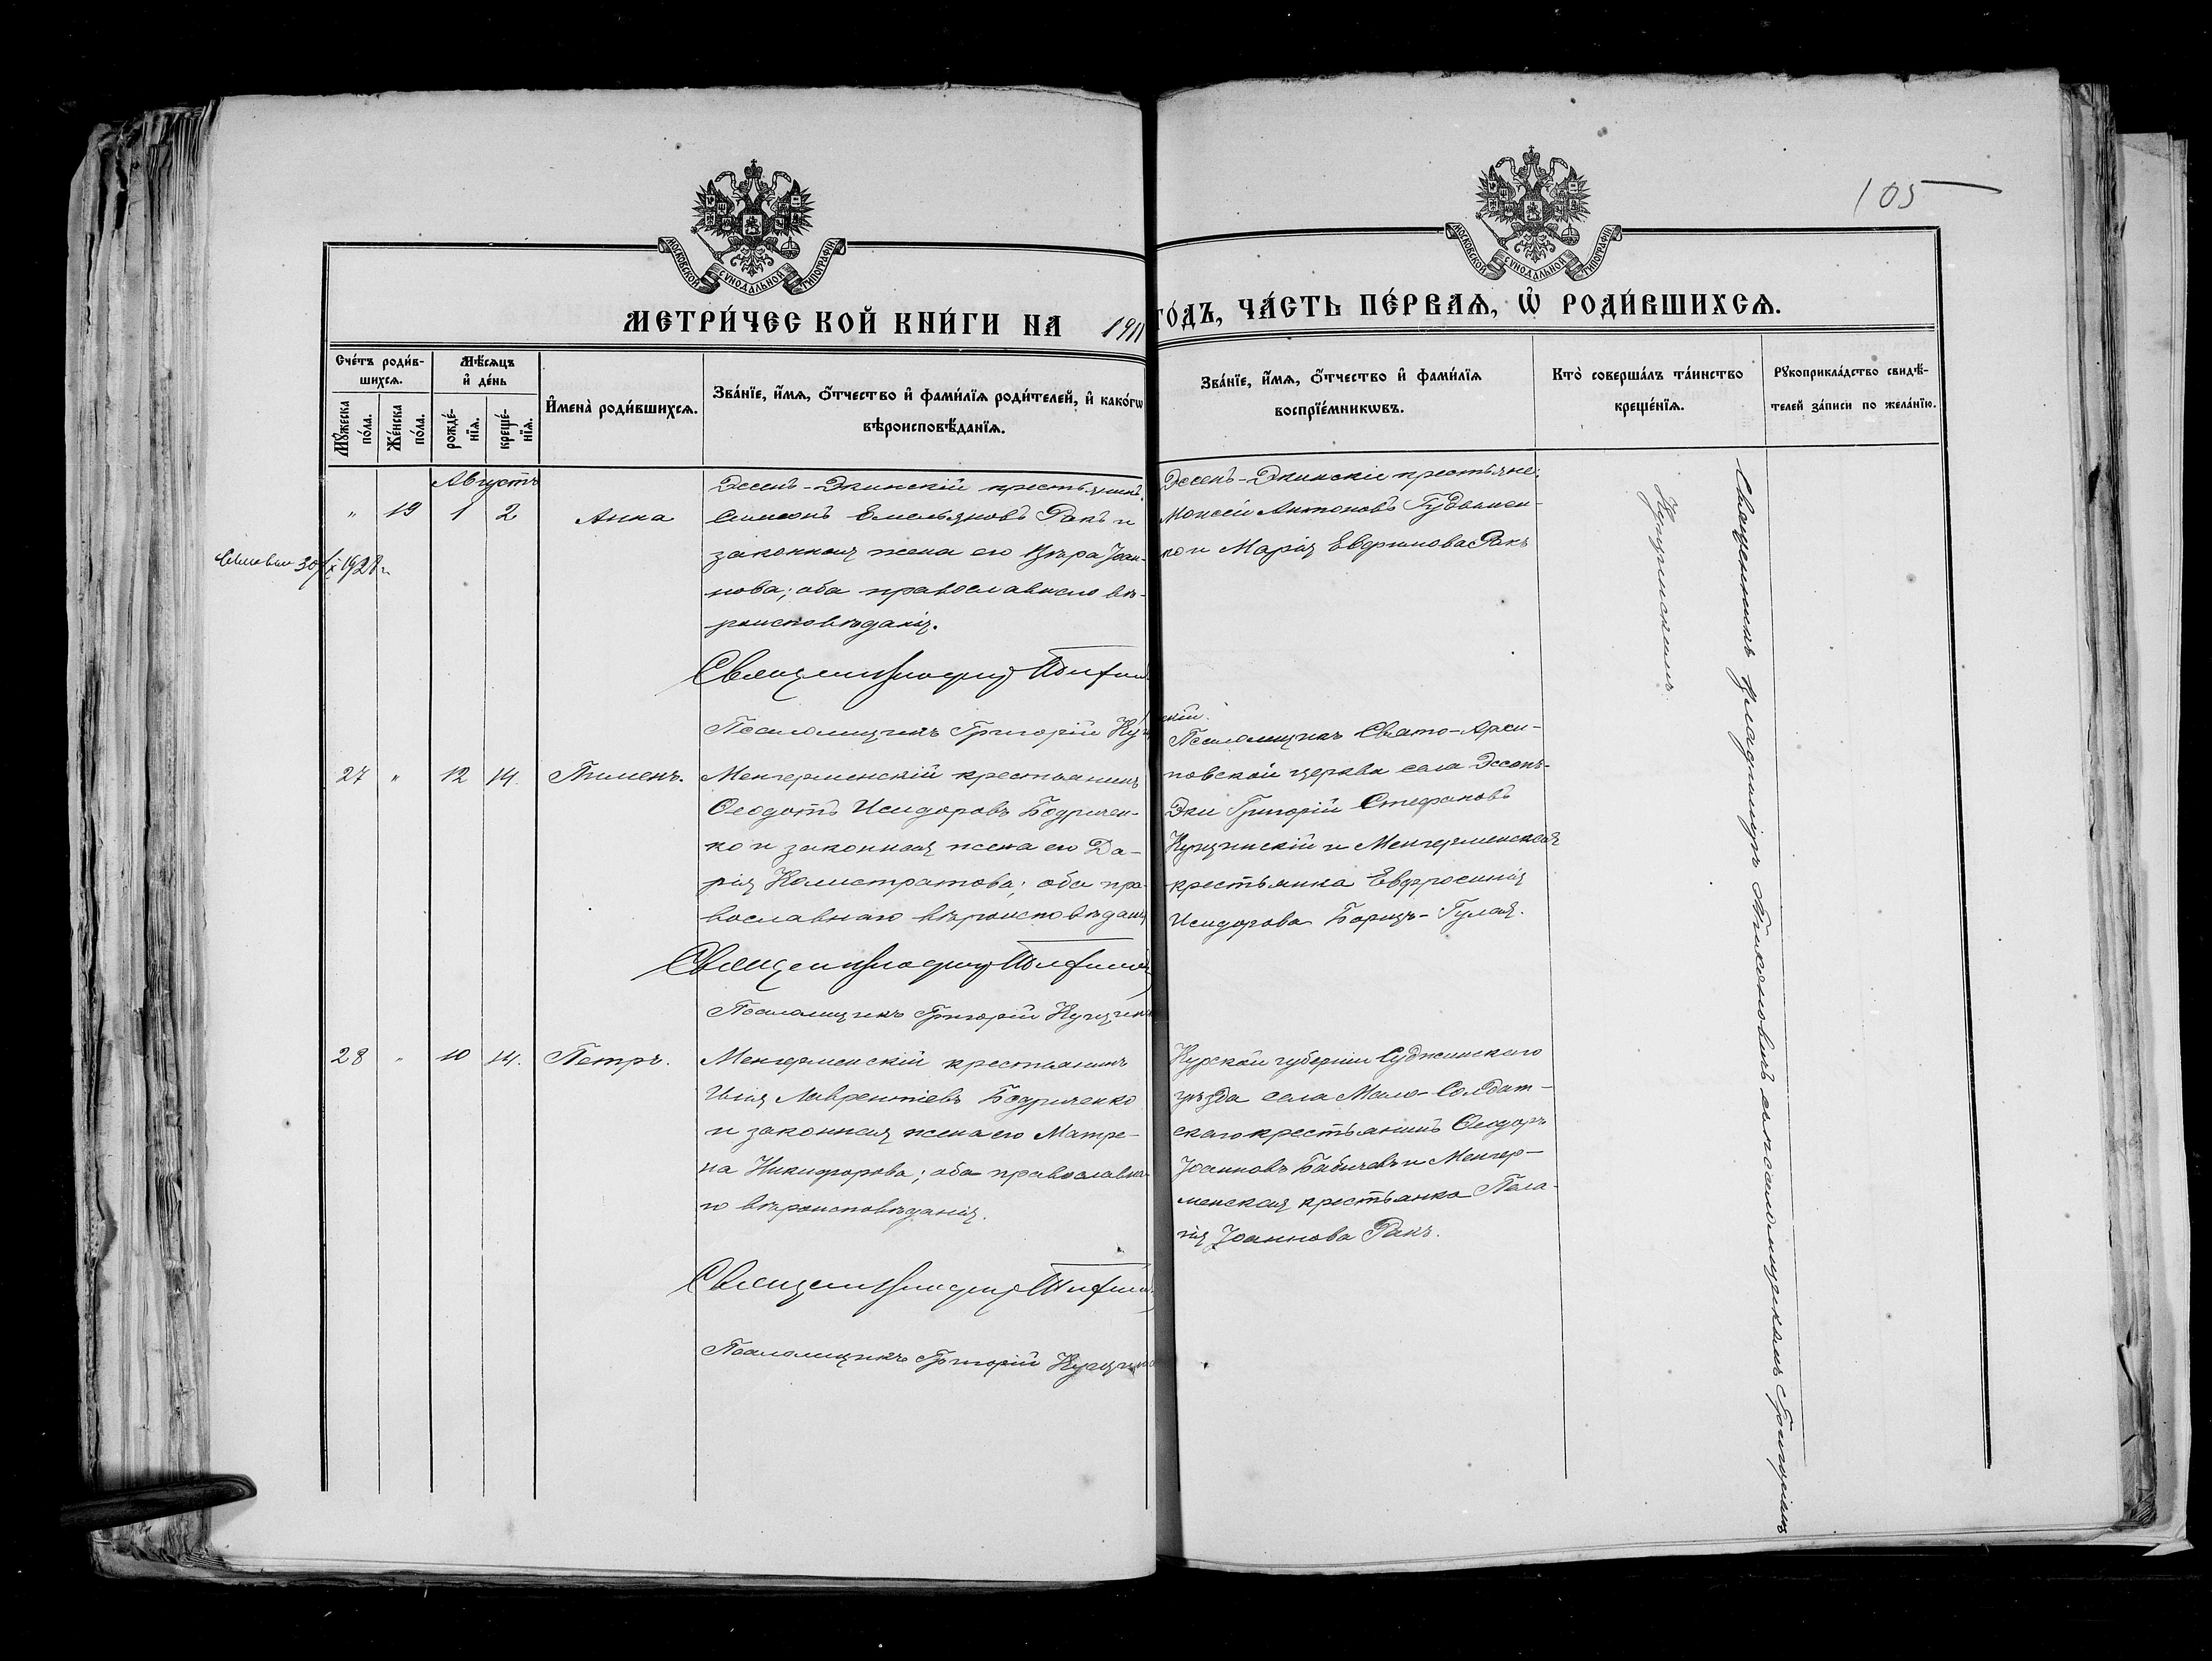 105
МОСКОВСКОЙ СУНОДАЛЬНОЙ ТИПОГРАФІИ
МОСКОВСКОЙ СУНОДАЛЬНОЙ ТИПОГРАФІИ
МЕТРИ́ЧЕСКОЙ КНИ́ГИ НА 1911 ГО́ДЪ, ЧА́СТЬ ПЕ́РВАЯ, Ѡ҆ РОДИ́ВШИХСЯ.
Сче́тъ роди́в-
шихся.
Мꙋ́жеска по́ла.
Же́нска по́ла.
Мѣ́сяцъ
и҆ де́нь
рожде́-
нїя.
креще́-
нїя.
И҆мена̀ роди́вшихся.
Зва́нїе, и҆́мя, ѻ҆́тчество и҆ фами́лїя роди́телей, и҆ како́гѡ
вѣроисповѣ́данїя.
Зва́нїе, и҆́мя, ѻ҆́тчество и҆ фами́лїя
воспрїе́мникѡвъ.
Кто̀ соверша́лъ та́инство
креще́нїя.
Рꙋкоприкла́дство свидѣ́-
телей за́писи по жела́нїю.
Августъ
" 19 1 2 Анна
Эссенъ-Экинскій крестьянинъ
Симеонъ Емельяновъ Ракъ и
законная жена его Вѣра Іоан-
нова; оба православнаго вѣ-
роисповѣданія.
1928 г.
Псаломщикъ Григорій
Эссенъ-Экинскіе крестьяне:
Моисей Антоновъ Гудымен-
ко и Марія Евфимова Ракъ
27 " 12 14. Пименъ.
Менгерменскій крестьянинъ
Ѳеодотъ Исидоровъ Бодричен-
ко и законная жена его Да-
рія Калистратова; оба пра-
вославнаго вѣроисповѣданія
Псаломщикъ Григорій
Псаломщикъ Свято-Архи-
повской церкви села Эссенъ-
Эки Григорій Стефановъ
Кущинскій и Менгерменская
крестьянка Евфросинія
Исидорова Борщъ-Гулая.
28 " 10 14. Петръ.
Менгерменскій крестьянинъ
Илія Лаврентіевъ Бодриченко
и законная жена его Матре-
на Никифорова; оба православна-
го вѣроисповѣданія.
Псаломщикъ Григорій
Курской губерніи Суджинскаго
уѣзда села Мало-Солдат-
скаго крестьянинъ Ѳеодоръ
Іоанновъ Бабичевъ и Менгер-
менская крестьянка Пела-
гія Іоаннова Ракъ.
Священникъ Владиміръ съ псаломщикомъ Григоріемъ
Кущинскимъ